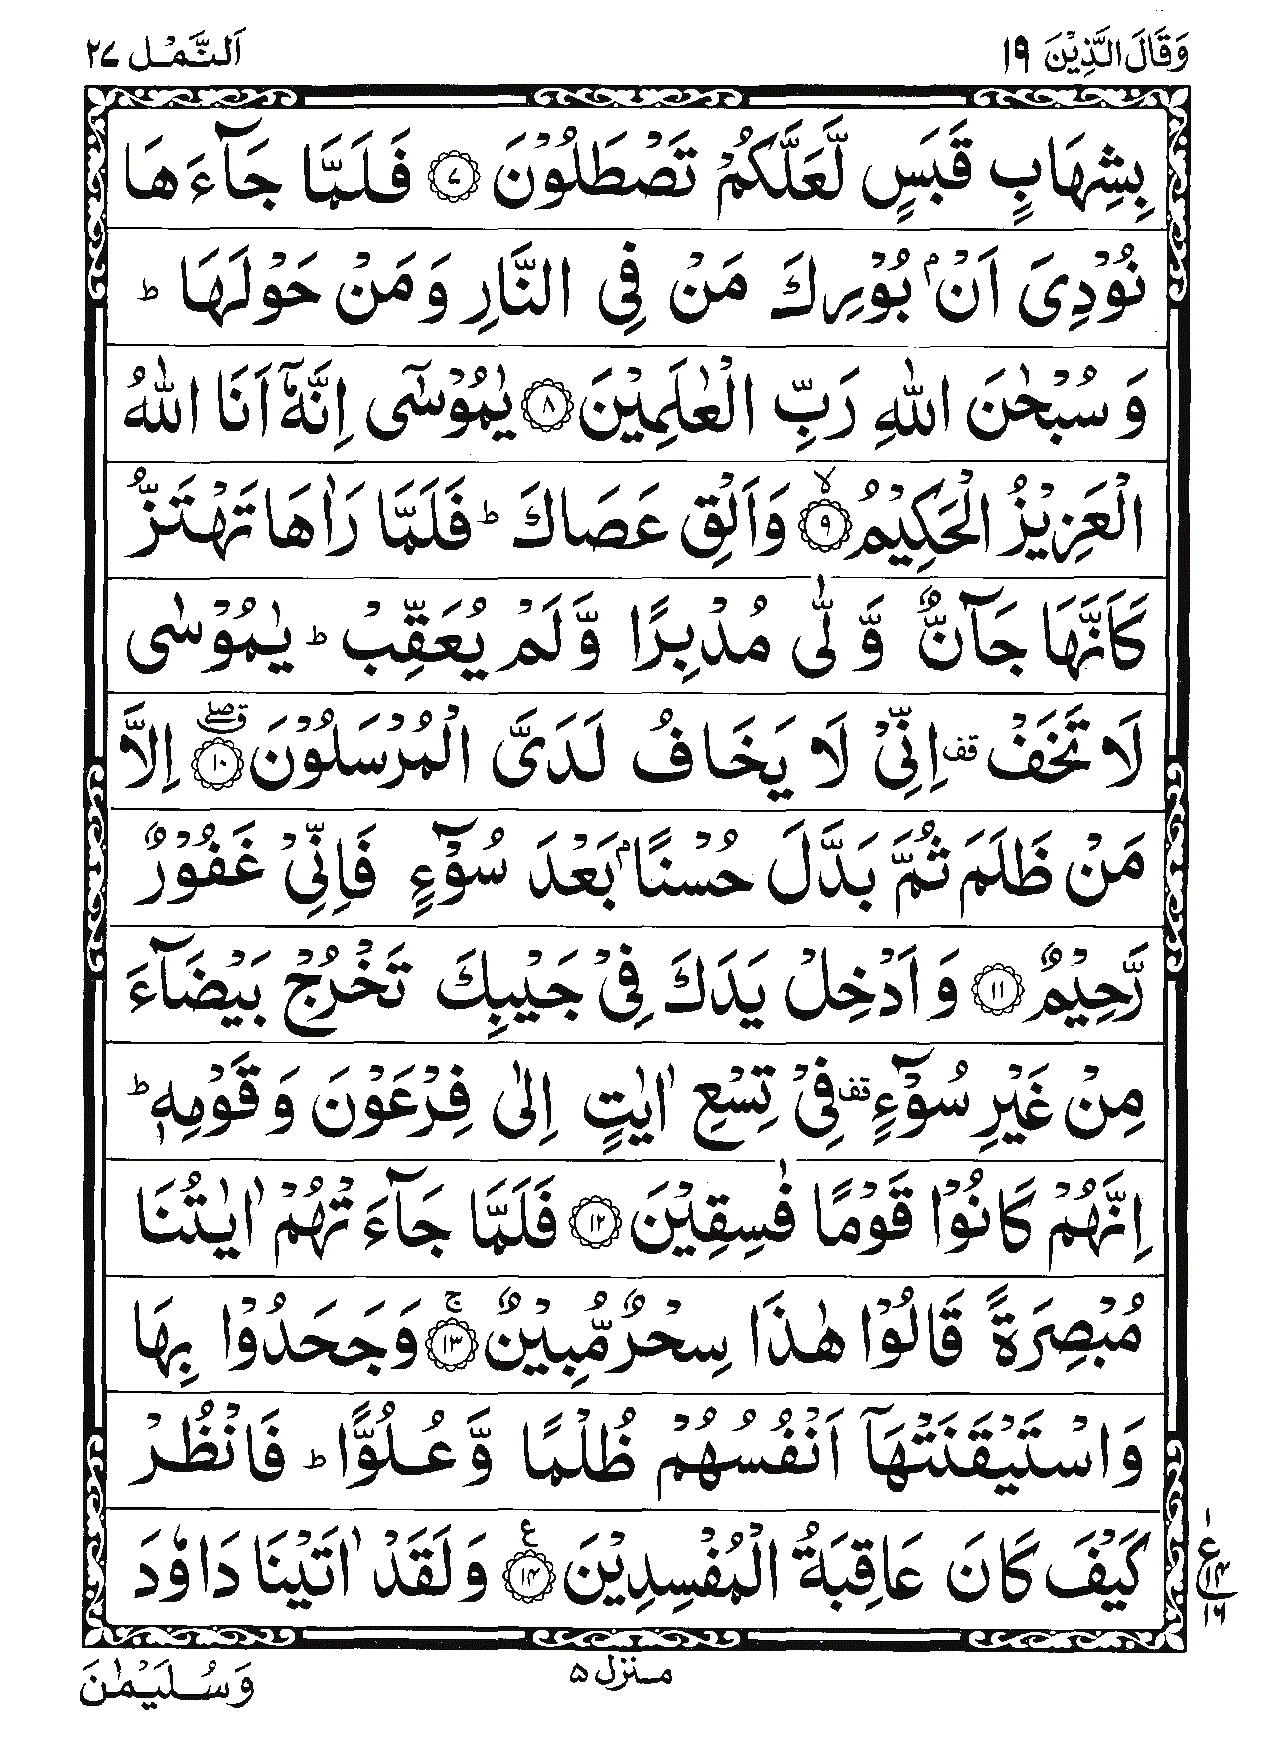 وَقَالَ الَّذِيْنَ ١٩
اَلنَّمْل ٢٧
بِشِهَابٍ قَبَسٍ لَّعَلَّكُمْ تَصْطَلُوْنَ ۝٧ فَلَمَّا جَآءَهَا
نُوْدِىَ اَنْۢ بُوْرِكَ مَنْ فِى النَّارِ وَمَنْ حَوْلَهَا ؕ
وَسُبْحٰنَ اللّٰهِ رَبِّ الْعٰلَمِيْنَ ۝٨ يٰمُوْسٰۤى اِنَّهٗۤ اَنَا اللّٰهُ
الْعَزِيْزُ الْحَكِيْمُ ۝٩ۙ وَاَلْقِ عَصَاكَ ؕ فَلَمَّا رَاٰهَا تَهْتَزُّ
كَاَنَّهَا جَآنٌّ وَّلّٰى مُدْبِرًا وَّلَمْ يُعَقِّبْ ؕ يٰمُوْسٰى
لَا تَخَفْ قف اِنِّىْ لَا يَخَافُ لَدَىَّ الْمُرْسَلُوْنَ ۝١٠ۖق اِلَّا
مَنْ ظَلَمَ ثُمَّ بَدَّلَ حُسْنًۢا بَعْدَ سُوْٓءٍ فَاِنِّىْ غَفُوْرٌ
رَّحِيْمٌ ۝١١ وَاَدْخِلْ يَدَكَ فِىْ جَيْبِكَ تَخْرُجْ بَيْضَآءَ
مِنْ غَيْرِ سُوْٓءٍ قف فِىْ تِسْعِ اٰيٰتٍ اِلٰى فِرْعَوْنَ وَقَوْمِهٖ ؕ
اِنَّهُمْ كَانُوْا قَوْمًا فٰسِقِيْنَ ۝١٢ فَلَمَّا جَآءَتْهُمْ اٰيٰتُنَا
مُبْصِرَةً قَالُوْا هٰذَا سِحْرٌ مُّبِيْنٌ ۝١٣ۚ وَجَحَدُوْا بِهَا
وَاسْتَيْقَنَتْهَاۤ اَنْفُسُهُمْ ظُلْمًا وَّعُلُوًّا ؕ فَانْظُرْ
كَيْفَ كَانَ عَاقِبَةُ الْمُفْسِدِيْنَ ۝١٤ ع وَلَقَدْ اٰتَيْنَا دَاوٗدَ
١ ع ١٤ ١٦
منزل ٥
وَسُلَيْمٰنَ